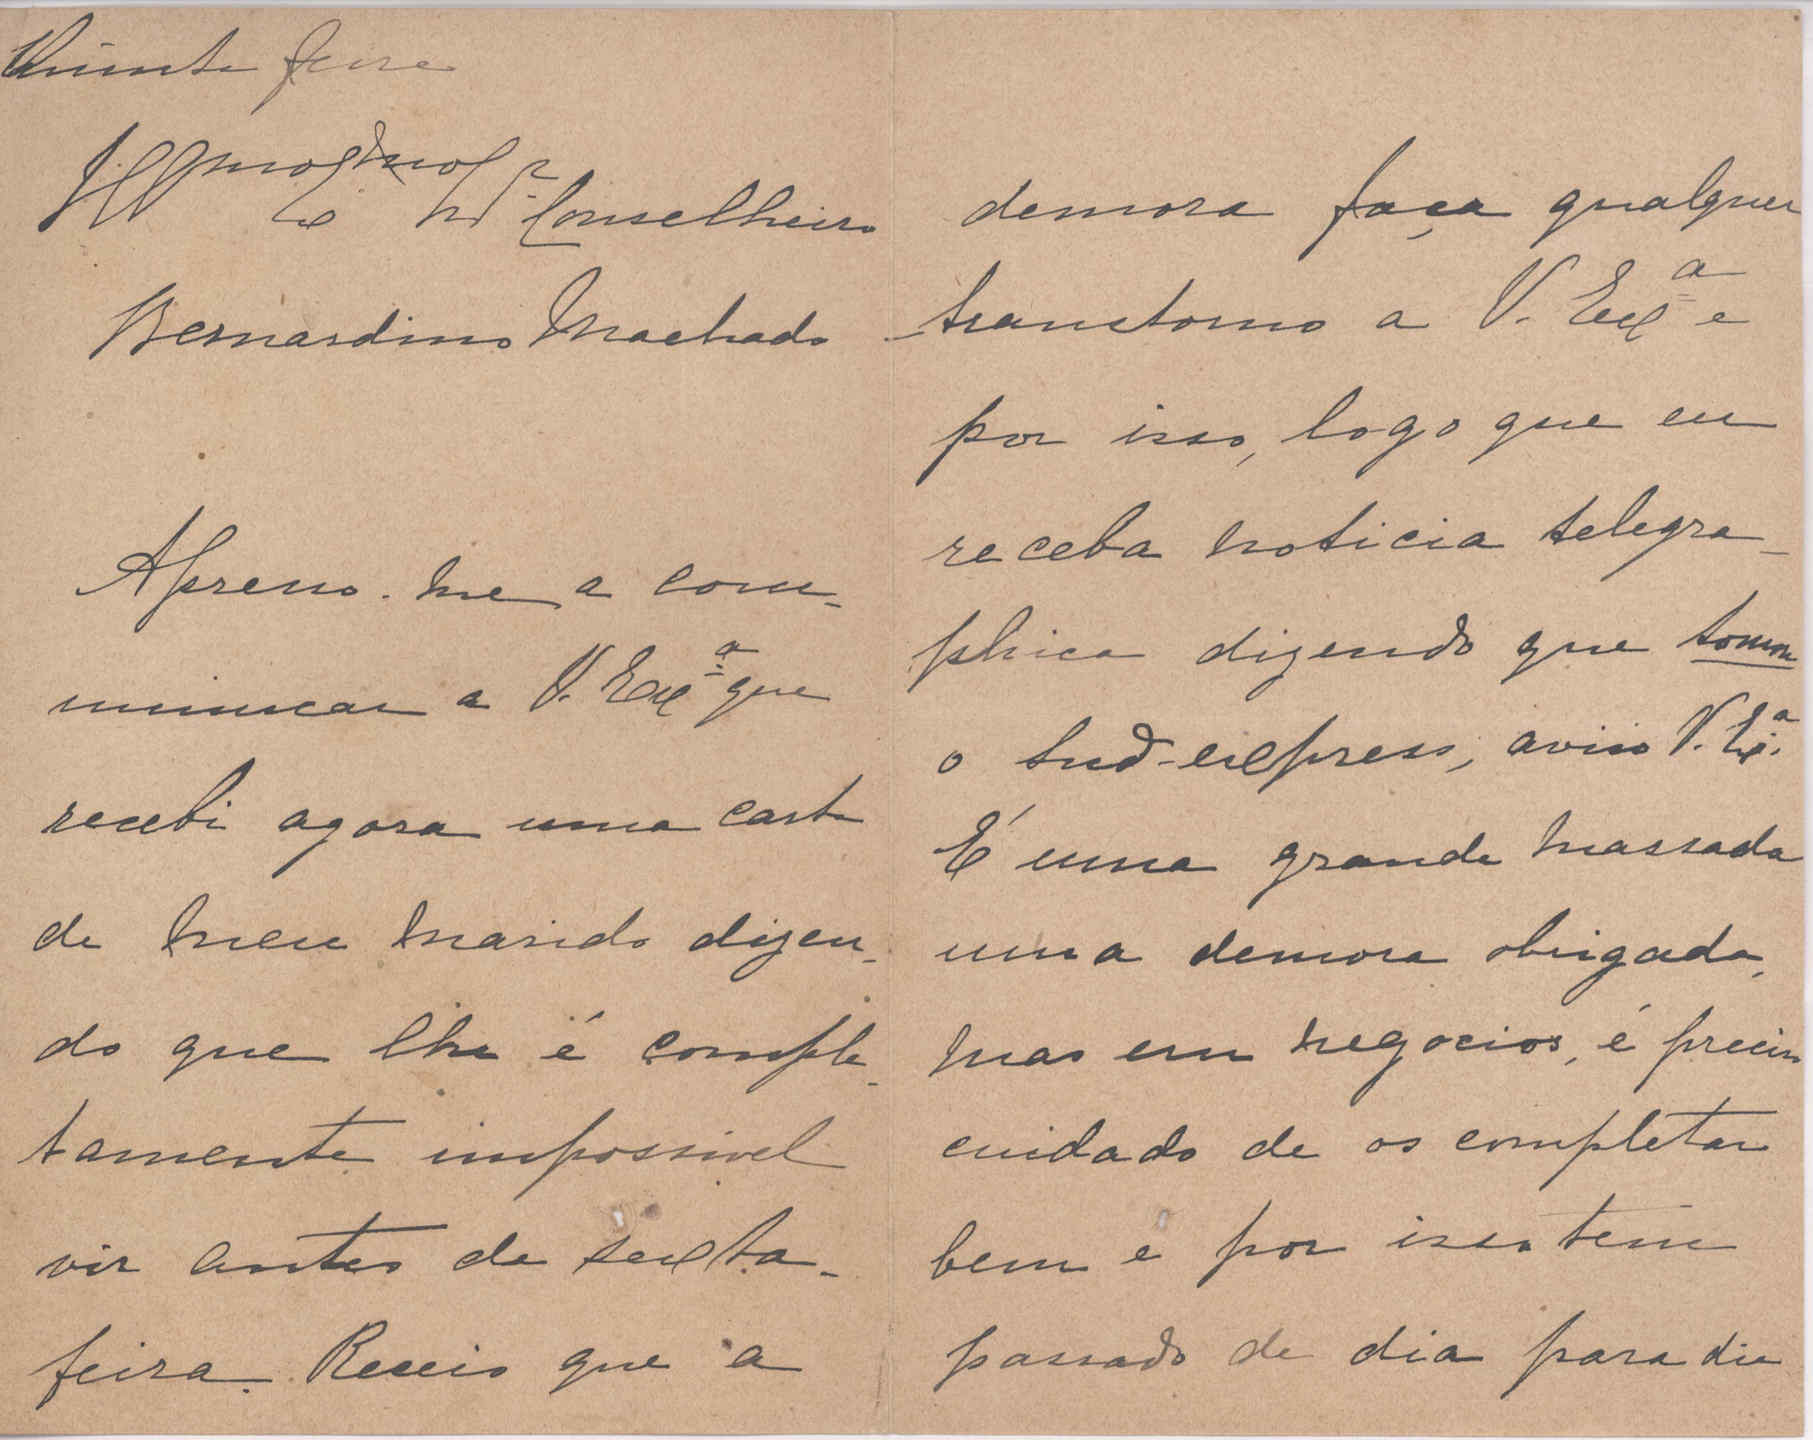 Quinta feira
Illmo e Exmo Sr. Conselheiro
Bernardino Machado
Apresso-me a com-
municar a V. Exª que
recebi agora uma carta
de meu marido dizen-
do que lhe é comple-
tamente impossivel
vir antes de sexta-
feira. Receio que a
demora faça qualquer
transtorno a V. Exª e
por isso, logo que eu
receba noticia telegra-
phica dizendo que tomou
o sud-express, aviso V. Exª.
É uma grande massada
uma demora obrigada,
mas em negocios, é preciso
cuidado de os completar
bem e por isso tem
passado de dia para dia